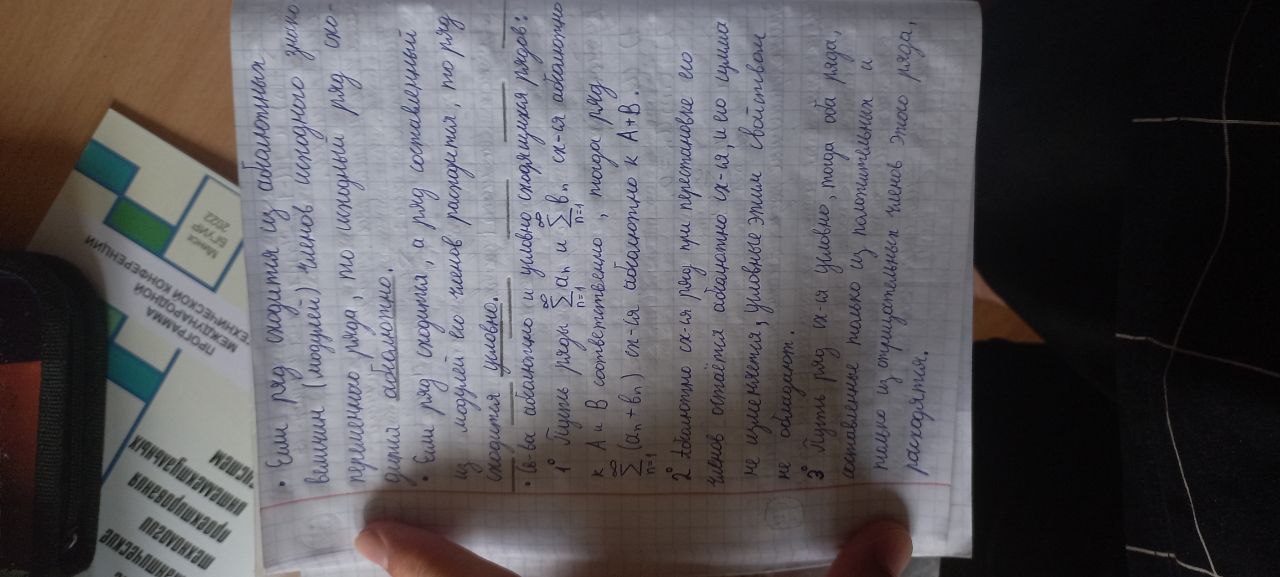 • Если ряд сходится из абсолютных
величин (модулей) членов исходного знако
переменного ряда, то исходный ряд схо-
дится абсолютно.
• Если ряд сходится, а ряд составленный
из модулей его членов расходится, то ряд
сходится условно.
• Св-ва абсолютно и условно сходящихся рядов:
1° Пусть ряды ∑ₙ₌₁^∞ aₙ и ∑ₙ₌₁^∞ bₙ сх-ся абсолютно
к A и B соответственно, тогда ряд
∑ₙ₌₁^∞ (aₙ + bₙ) сх-ся абсолютно к A+B.
2° Абсолютно сх-ся ряд при перестановке его
членов остаётся абсолютно сх-ся, и его сумма
не изменяется, условные этим свойством
не обладают.
3° Пусть ряд сх-ся условно, тогда оба ряда,
составленные только из положительных и
только из отрицательных членов этого ряда,
расходятся.
ПРОГРАММА
МЕЖДУНАРОДНОЙ
ТЕХНИЧЕСКОЙ КОНФЕРЕНЦИИ
Минск
БГУИР
2022
технологии
проектирования
интеллектуальных
систем